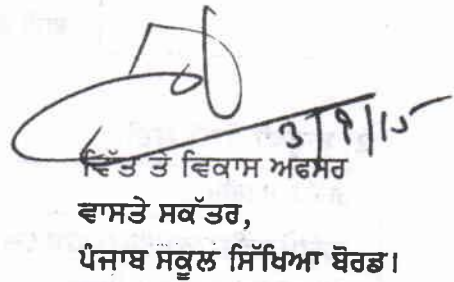 3/9/15
ਵਿੱਤ ਤੇ ਵਿਕਾਸ ਅਫਸਰ
ਵਾਸਤੇ ਸਕੱਤਰ,
ਪੰਜਾਬ ਸਕੂਲ ਸਿੱਖਿਆ ਬੋਰਡ।